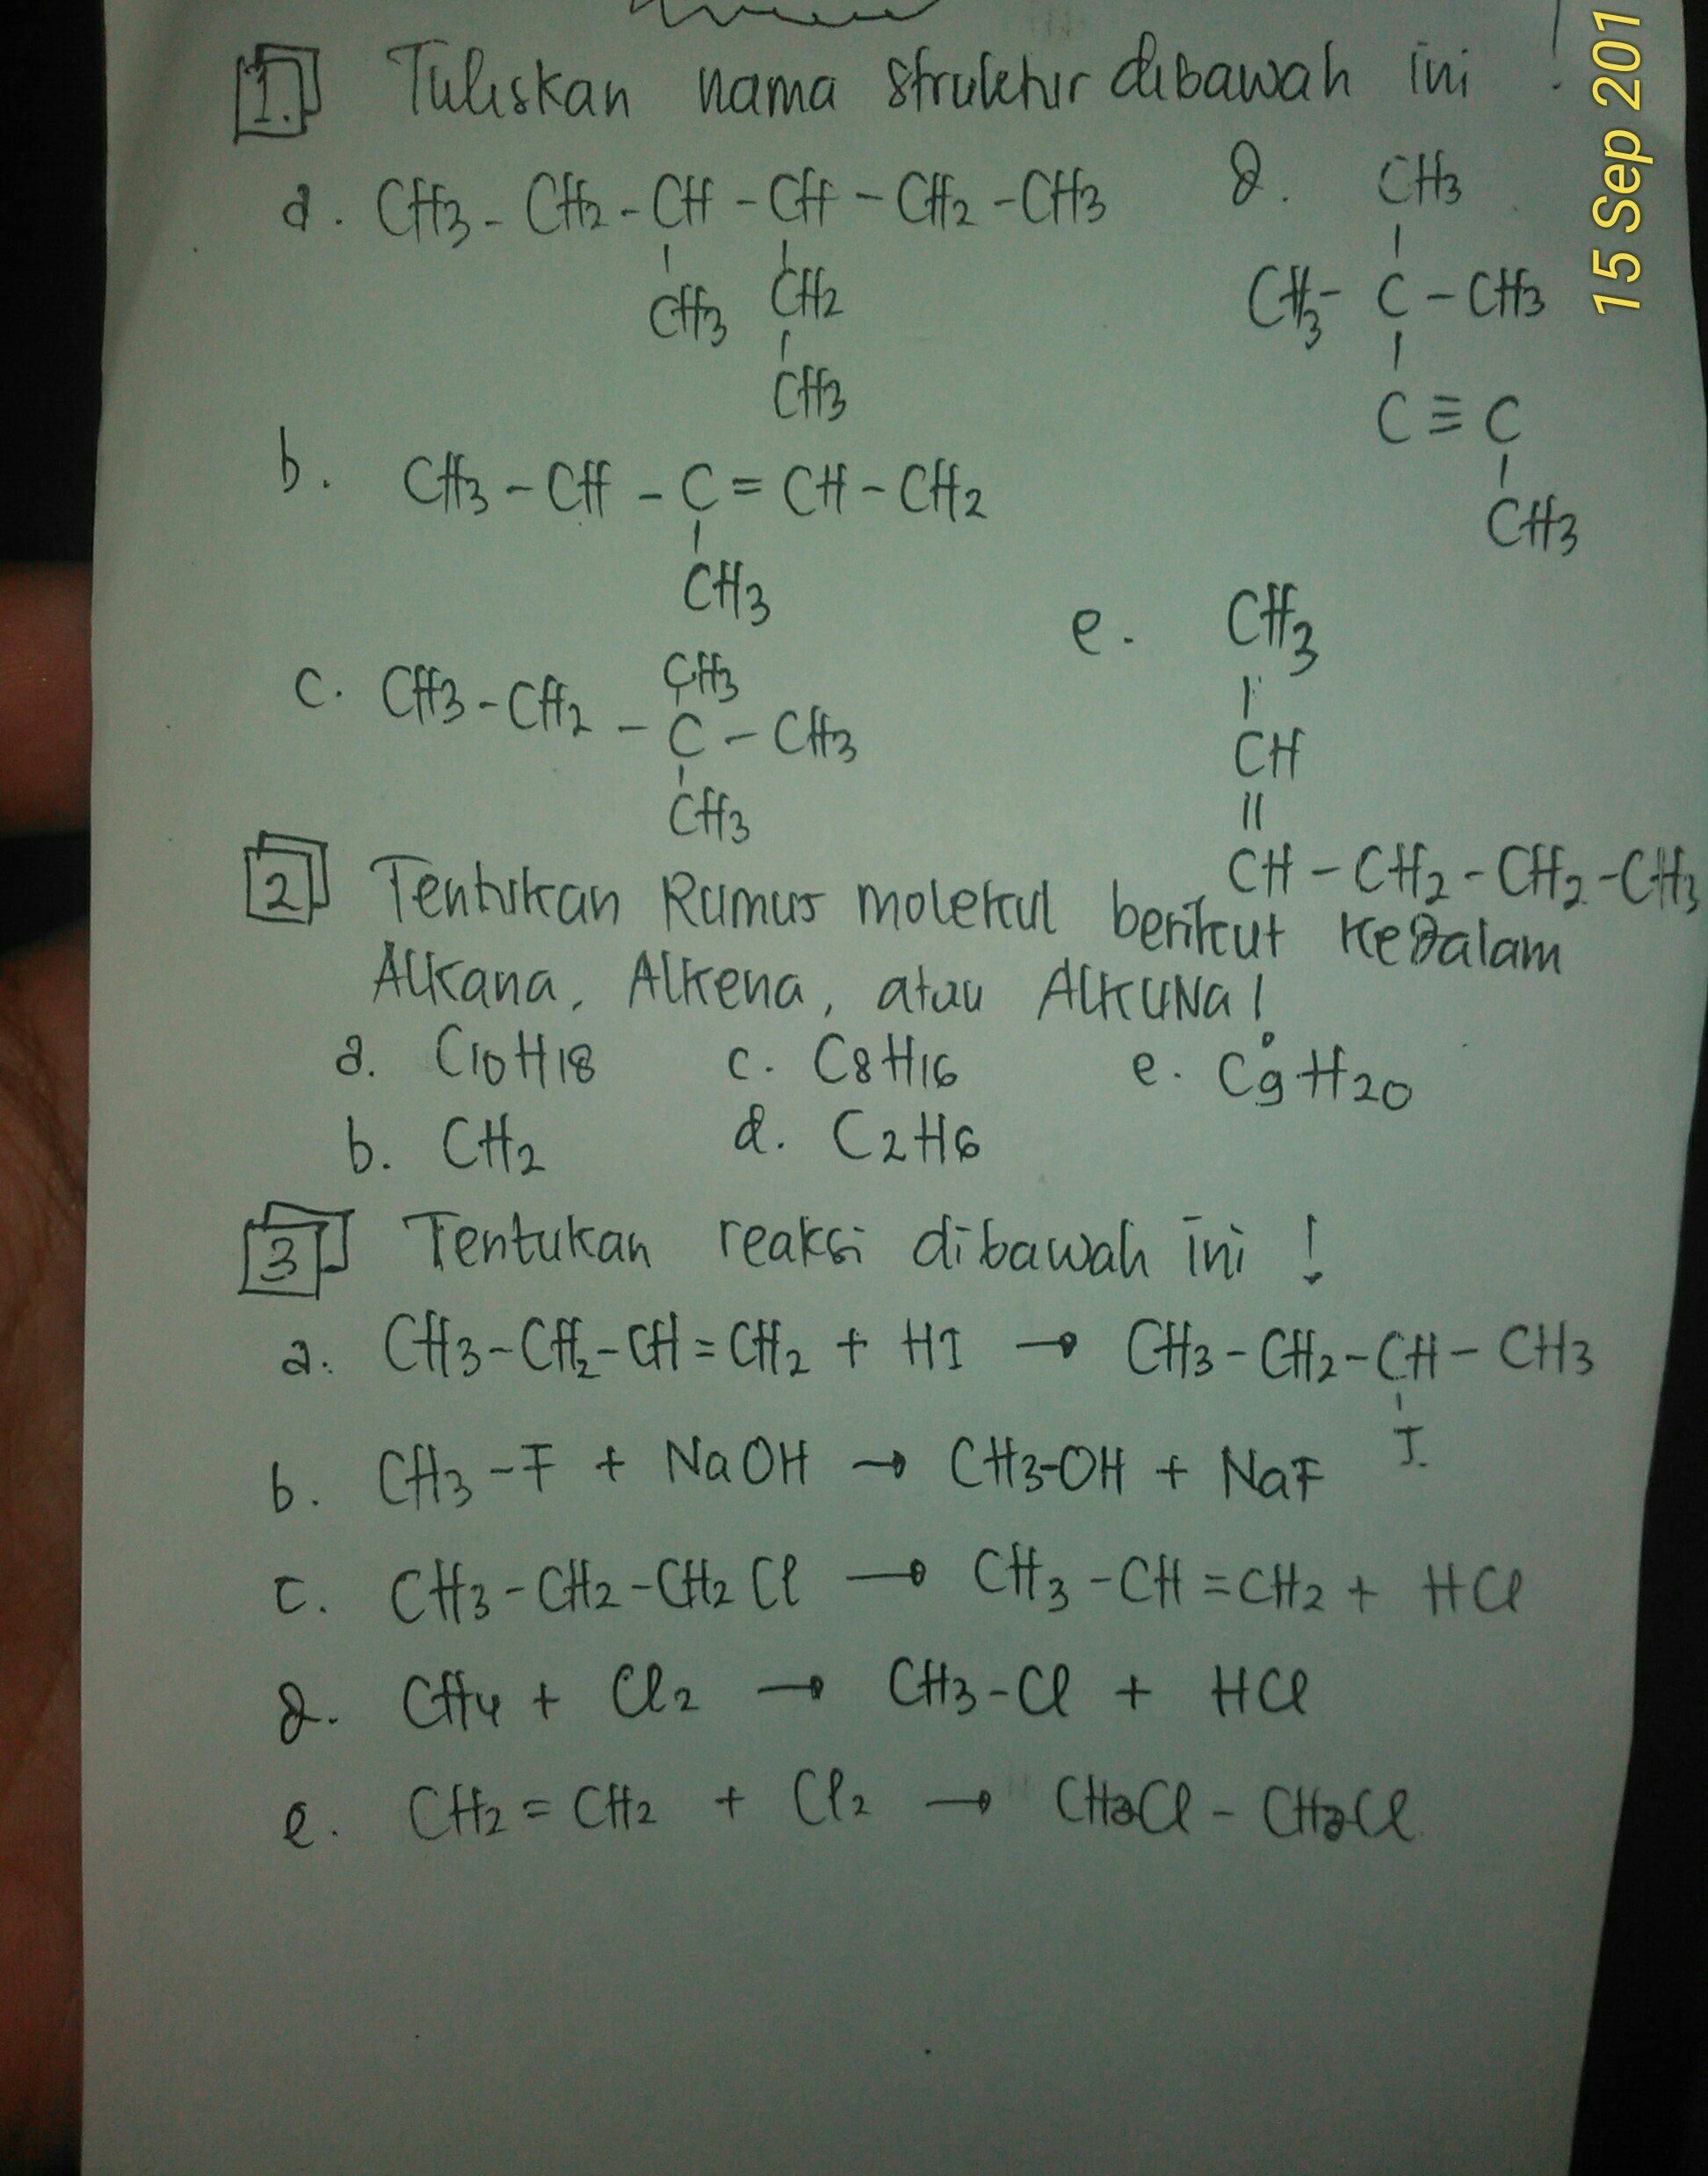 1. Tuliskan nama struktur dibawah ini !
a. CH3 - CH2 - CH - CH - CH2 - CH3
CH3 CH2
CH3
b. CH3 - CH - C = CH - CH2
CH3
c. CH3 - CH2 - C - CH3
CH3
CH3
d. CH3
CH3 - C - CH3
C ≡ C
CH3
e. CH3
CH
CH - CH2 - CH2 - CH3
2 Tentukan Rumus molekul berikut kedalam
Alkana, Alkena, atau AlkUNa!
a. C10H18 c. C8H16 e. C9H20
b. CH2 d. C2H6
3 Tentukan reaksi dibawah ini !
a. CH3-CH2-CH=CH2 + HI → CH3-CH2-CH-CH3
I
b. CH3-F + NaOH → CH3-OH + NaF
c. CH3-CH2-CH2Cl → CH3-CH=CH2 + HCl
d. CH4 + Cl2 → CH3-Cl + HCl
e. CH2=CH2 + Cl2 → CH2Cl - CH2Cl
15 Sep 201